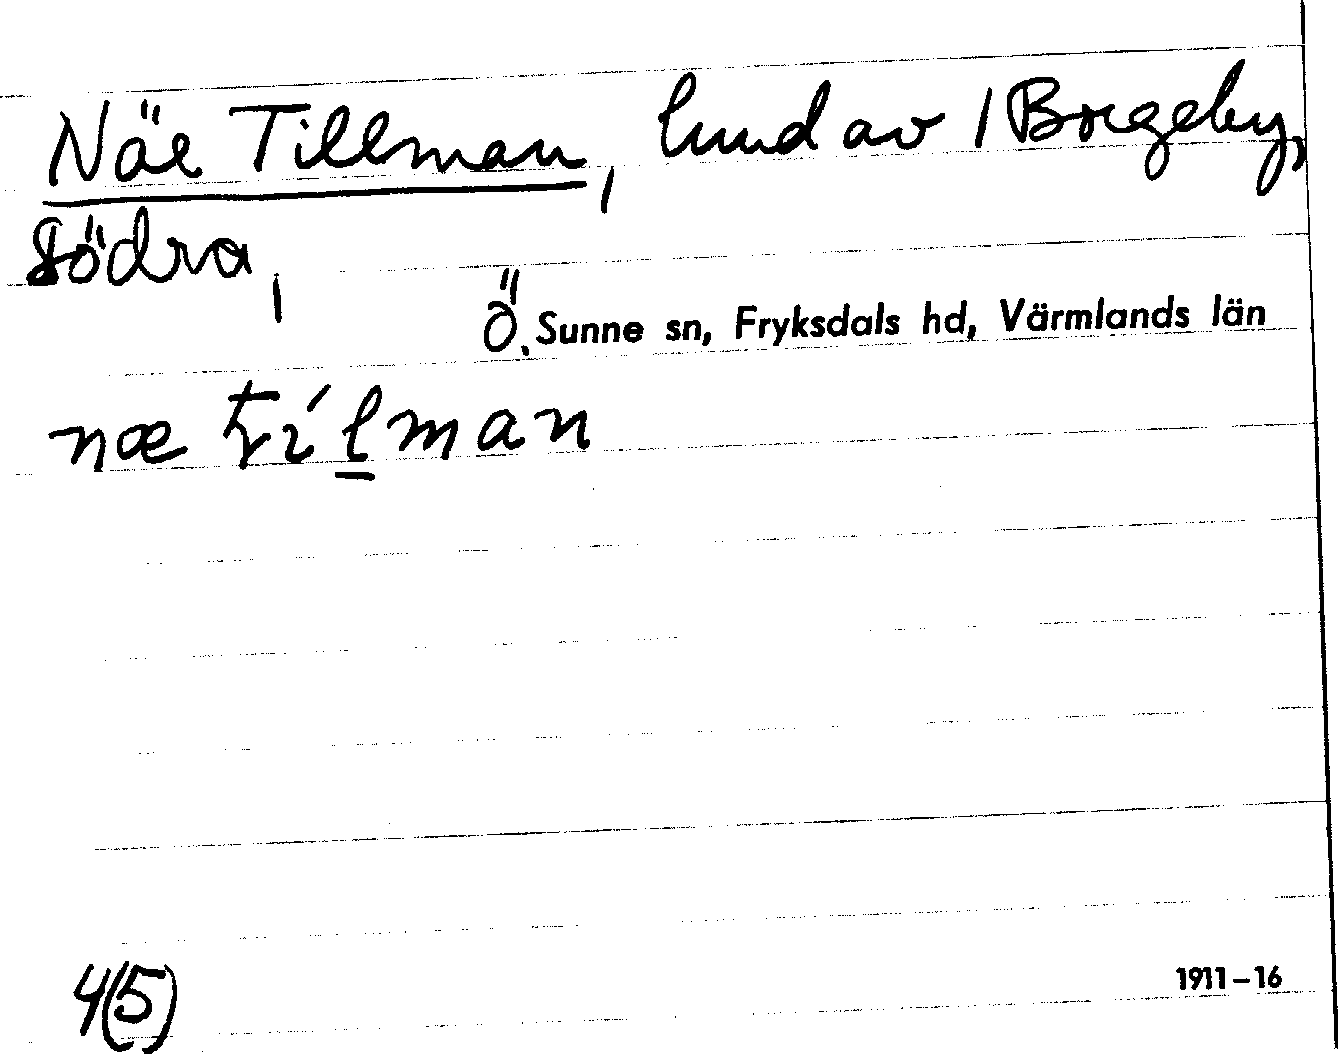 Näe Tillman, hmd av 1 Borgeby,
södra,
Ö. Sunne sn, Fryksdals hd, Värmlands län
næ tílman
4(5)
1911–16